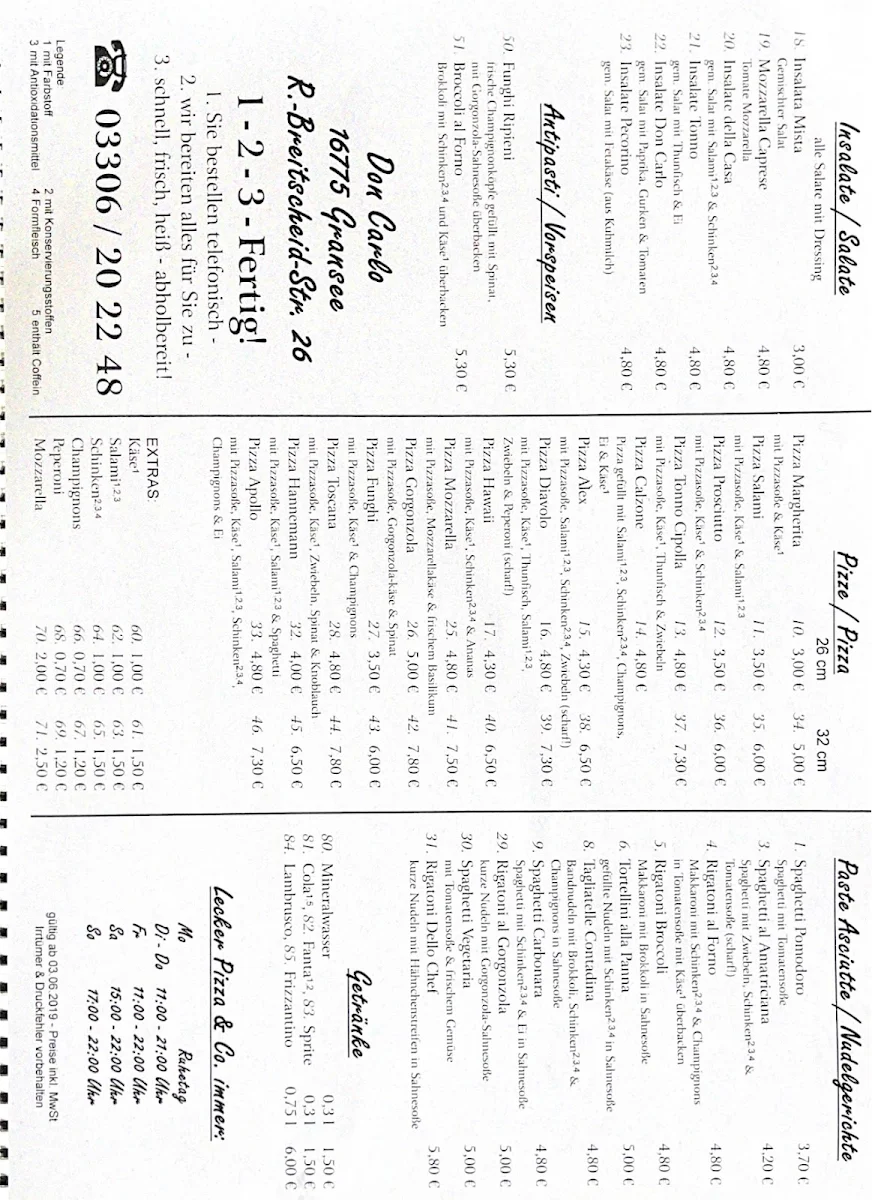 Insalate / Salate
alle Salate mit Dressing
18. Insalata Mista 3,00 €
Gemischter Salat
19. Mozzarella Caprese 4,80 €
Tomate Mozzarella
20. Insalate della Casa 4,80 €
gem. Salat mit Salami¹,²,³ & Schinken²,³,⁴
21. Insalate Tonno 4,80 €
gem. Salat mit Thunfisch & Ei
22. Insalate Don Carlo 4,80 €
gem. Salat mit Paprika, Gurken & Tomaten
23. Insalate Pecorino 4,80 €
gem. Salat mit Fetakäse (aus Kuhmilch)
Antipasti / Vorspeisen
50. Funghi Ripieni 5,30 €
frische Champignonköpfe gefüllt mit Spinat,
mit Gorgonzola-Sahnesoße überbacken
51. Broccoli al Forno 5,30 €
Brokkoli mit Schinken²,³,⁴ und Käse¹ überbacken
Don Carlo
16775 Gransee
R.-Breitscheid-Str. 26
1 - 2 - 3 - Fertig!
1. Sie bestellen telefonisch -
2. wir bereiten alles für Sie zu -
3. schnell, frisch, heiß - abholbereit!
03306 / 20 22 48
Legende
1 mit Farbstoff 2 mit Konservierungsstoffen
3 mit Antioxidationsmittel 4 Formfleisch 5 enthält Coffein
Pizze / Pizza
26 cm 32 cm
Pizza Margherita 10. 3,00 € 34. 5,00 €
mit Pizzasoße & Käse¹
Pizza Salami 11. 3,50 € 35. 6,00 €
mit Pizzasoße, Käse¹ & Salami¹,²,³
Pizza Prosciutto 12. 3,50 € 36. 6,00 €
mit Pizzasoße, Käse¹ & Schinken²,³,⁴
Pizza Tonno Cipolla 13. 4,80 € 37. 7,30 €
mit Pizzasoße, Käse¹, Thunfisch & Zwiebeln
Pizza Calzone 14. 4,80 €
Pizza gefüllt mit Salami¹,²,³, Schinken²,³,⁴, Champignons,
Ei & Käse¹
Pizza Alex 15. 4,30 € 38. 6,50 €
mit Pizzasoße, Salami¹,²,³, Schinken²,³,⁴, Zwiebeln (scharf!)
Pizza Diavolo 16. 4,80 € 39. 7,30 €
mit Pizzasoße, Käse¹, Thunfisch, Salami¹,²,³,
Zwiebeln & Peperoni (scharf!)
Pizza Hawaii 17. 4,30 € 40. 6,50 €
mit Pizzasoße, Käse¹, Schinken²,³,⁴ & Ananas
Pizza Mozzarella 25. 4,80 € 41. 7,50 €
mit Pizzasoße, Mozzarellakäse & frischem Basilikum
Pizza Gorgonzola 26. 5,00 € 42. 7,80 €
mit Pizzasoße, Gorgonzola-käse & Spinat
Pizza Funghi 27. 3,50 € 43. 6,00 €
mit Pizzasoße, Käse¹ & Champignons
Pizza Toscana 28. 4,80 € 44. 7,80 €
mit Pizzasoße, Käse¹, Zwiebeln, Spinat & Knoblauch
Pizza Hannemann 32. 4,00 € 45. 6,50 €
mit Pizzasoße, Käse¹, Salami¹,²,³ & Spaghetti
Pizza Apollo 33. 4,80 € 46. 7,30 €
mit Pizzasoße, Käse¹, Salami¹,²,³, Schinken²,³,⁴,
Champignons & Ei
EXTRAS:
Käse¹ 60. 1,00 € 61. 1,50 €
Salami¹,²,³ 62. 1,00 € 63. 1,50 €
Schinken²,³,⁴ 64. 1,00 € 65. 1,50 €
Champignons 66. 0,70 € 67. 1,20 €
Peperoni 68. 0,70 € 69. 1,20 €
Mozzarella 70. 2,00 € 71. 2,50 €
Paste Asciutte / Nudelgerichte
1. Spaghetti Pomodoro 3,70 €
Spaghetti mit Tomatensoße
3. Spaghetti al Amatriciana 4,20 €
Spaghetti mit Zwiebeln, Schinken²,³,⁴ &
Tomatensoße (scharf!)
4. Rigatoni al Forno 4,80 €
Makkaroni mit Schinken²,³,⁴ & Champignons
in Tomatensoße mit Käse¹ überbacken
5. Rigatoni Broccoli 4,80 €
Makkaroni mit Brokkoli in Sahnesoße
6. Tortellini alla Panna 5,00 €
gefüllte Nudeln mit Schinken²,³,⁴ in Sahnesoße
8. Tagliatelle Contadina 4,80 €
Bandnudeln mit Brokkoli, Schinken²,³,⁴ &
Champignons in Sahnesoße
9. Spaghetti Carbonara 4,80 €
Spaghetti mit Schinken²,³,⁴ & Ei in Sahnesoße
29. Rigatoni al Gorgonzola 5,00 €
kurze Nudeln mit Gorgonzola-Sahnesoße
30. Spaghetti Vegetaria 5,00 €
mit Tomatensoße & frischem Gemüse
31. Rigatoni Dello Chef 5,80 €
kurze Nudeln mit Hähnchenstreifen in Sahnesoße
Getränke
80. Mineralwasser 0,3 l 1,50 €
81. Cola¹,⁵, 82. Fanta¹,², 83. Sprite 0,3 l 1,50 €
84. Lambrusco, 85. Frizzantino 0,75 l 6,00 €
Lecker Pizza & Co. immer:
Mo Ruhetag
Di - Do 11:00 - 21:00 Uhr
Fr 11:00 - 22:00 Uhr
Sa 15:00 - 22:00 Uhr
So 17:00 - 22:00 Uhr
gültig ab 03.06.2019 - Preise inkl. MwSt
Irrtümer & Druckfehler vorbehalten